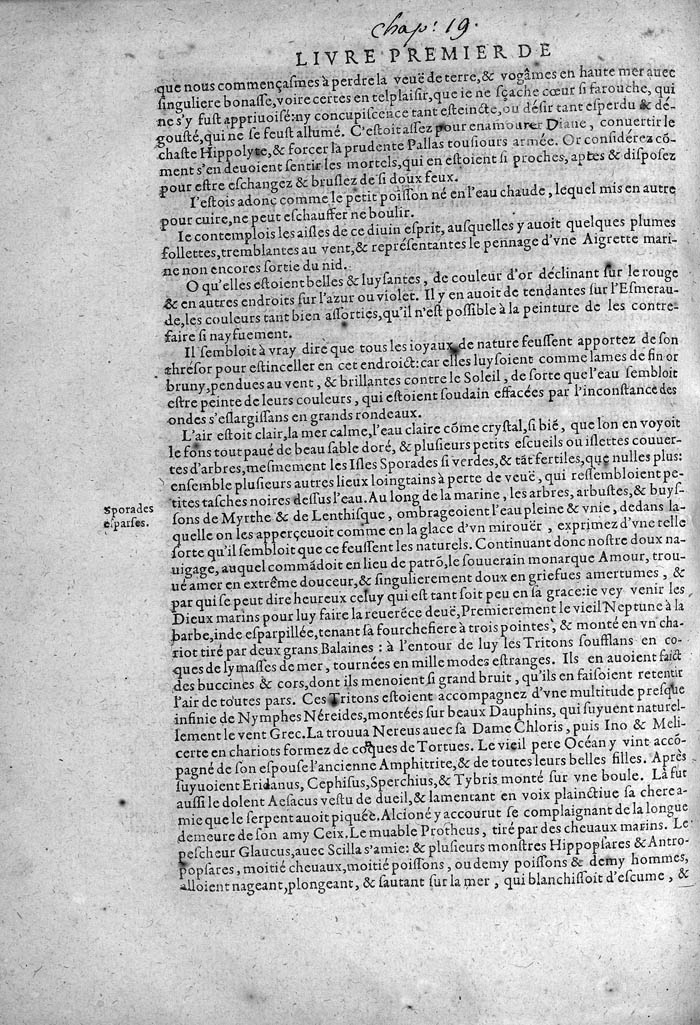 chap: 19.
LIVRE PREMIER DE
que nous commençasmes à perdre la veuë de terre, & vogâmes en haute mer auec
singuliere bonasse, voire certes en tel plaisir, que ie ne sçache cœur si farouche, qui
ne s'y fust appriuoisé: ny concupiscence tant esteincte, ou désir tant esperdu & dé-
gousté, qui ne se feust allumé. C'estoit assez pour enamourer Diane, conuertir le
chaste Hippolyte, & forcer la prudente Pallas tousiours armée. Or considérez cō-
ment s'en deuoient sentir les mortels, qui en estoient si proches, aptes & disposez
pour estre eschangez & bruslez de si doux feux.
I'estois adonc comme le petit poisson né en l'eau chaude, lequel mis en autre
pour cuire, ne peut eschauffer ne boulir.
Ie contemplois les aisles de ce diuin esprit, ausquelles y auoit quelques plumes
follettes, tremblantes au vent, & représentantes le pennage d'vne Aigrette mari-
ne non encores sortie du nid.
O qu'elles estoient belles & luysantes, de couleur d'or déclinant sur le rouge
& en autres endroits sur l'azur ou violet. Il y en auoit de tendantes sur l'Esmerau-
de, les couleurs tant bien assorties, qu'il n'est possible à la peinture de les contre-
faire si nayfuement.
Il sembloit à vray dire que tous les ioyaux de nature feussent apportez de son
thrésor pour estinceller en cet endroict: car elles luysoient comme lames de fin or
bruny, pendues au vent, & brillantes contre le Soleil, de sorte que l'eau sembloit
estre peinte de leurs couleurs, qui estoient soudain effacées par l'inconstance des
ondes s'eslargissans en grands rondeaux.
L'air estoit clair, la mer calme, l'eau claire cōme crystal, si biē, que lon en voyoit
le fons tout paué de beau sable doré, & plusieurs petits escueils ou islettes couuer-
tes d'arbres, mesmement les Isles Sporades si verdes, & tāt fertiles, que nulles plus:
ensemble plusieurs autres lieux loingtains à perte de veuë, qui ressembloient pe-
Sporades
esparses.
tites tasches noires dessus l'eau. Au long de la marine, les arbres, arbustes, & buys-
sons de Myrthe & de Lenthisque, ombrageoient l'eau pleine & vnie, dedans la-
quelle on les apperçeuoit comme en la glace d'vn mirouër, exprimez d'vne telle
sorte qu'il sembloit que ce feussent les naturels. Continuant donc nostre doux na-
uigage, auquel commādoit en lieu de patrō, le souuerain monarque Amour, trou-
ué amer en extrême douceur, & singulierement doux en griefues amertumes, &
par qui se peut dire heureux celuy qui est tant soit peu en sa grace: ie vey venir les
Dieux marins pour luy faire la reuerēce deuë, Premierement le vieil Neptune à la
barbe, inde esparpillée, tenant sa fourchefiere à trois pointes, & monté en vn cha-
riot tiré par deux grans Balaines: à l'entour de luy les Tritons soufflans en co-
ques de lymasses de mer, tournées en mille modes estranges. Ils en auoient faict
des buccines & cors, dont ils menoient si grand bruit, qu'ils en faisoient retentir
l'air de toutes pars. Ces Tritons estoient accompagnez d'vne multitude presque
infinie de Nymphes Néreides, montées sur beaux Dauphins, qui suyuent naturel-
lement le vent Grec. La trouua Nereus auec sa Dame Chloris, puis Ino & Meli-
certe en chariots formez de coques de Tortues. Le vieil pere Océan y vint accō-
pagné de son espouse l'ancienne Amphitrite, & de toutes leurs belles filles. Après
suyuoient Eridanus, Cephisus, Sperchius, & Tybris monté sur vne boule. La fut
aussi le dolent Aesacus vestu de dueil, & lamentant en voix plainctiue sa chere a-
mie que le serpent auoit piquée. Alcioné y accourut se complaignant de la longue
demeure de son amy Ceix. Le muable Protheus, tiré par des cheuaux marins. Le
pescheur Glaucus, auec Scilla s'amie: & plusieurs monstres Hippopsares & Antro-
popsares, moitié cheuaux, moitié poissons, ou demy poissons & demy hommes,
alloient nageant, plongeant, & sautant sur la mer, qui blanchissoit d'escume, &